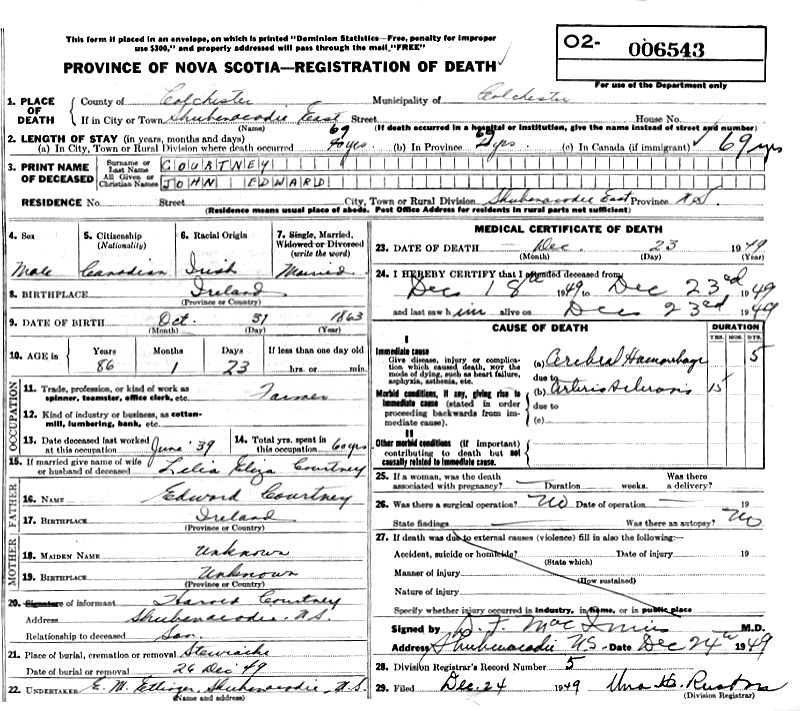 This form if placed in an envelope, on which is printed "Dominion Statistics—Free, penalty for improper
use $300," and properly addressed will pass through the mail, "FREE"
PROVINCE OF NOVA SCOTIA—REGISTRATION OF DEATH
O2- 006543
For use of the Department only
1. PLACE OF DEATH
County of Colchester Municipality of Colchester
If in City or Town Shubenacadie East Street House No.
(Name) (If death occurred in a hospital or institution, give the name instead of street and number)
2. LENGTH OF STAY (in years, months and days)
(a) In City, Town or Rural Division where death occurred 69 yrs (b) In Province yrs (c) In Canada (if immigrant) 69 yrs
3. PRINT NAME OF DECEASED
Surname or Last Name COURTNEY
All Given or Christian Names JOHN EDWARD
RESIDENCE No. Street City, Town or Rural Division Shubenacadie East Province N.S.
(Residence means usual place of abode. Post Office Address for residents in rural parts not sufficient)
4. Sex
Male
5. Citizenship
(Nationality)
Canadian
6. Racial Origin
Irish
7. Single, Married,
Widowed or Divorced
(write the word)
Married
8. BIRTHPLACE Ireland
(Province or Country)
9. DATE OF BIRTH Oct. 31 1863
(Month) (Day) (Year)
10. AGE in Years Months Days If less than one day old
86 1 23 hrs. or min.
OCCUPATION
11. Trade, profession, or kind of work as
spinner, teamster, office clerk, etc. Farmer
12. Kind of industry or business, as cotton-
mill, lumbering, bank, etc.
13. Date deceased last worked
at this occupation June '39
14. Total yrs. spent in
this occupation 60 yrs
15. If married give name of wife
or husband of deceased Lelia Eliza Courtney
FATHER
16. NAME Edward Courtney
17. BIRTHPLACE Ireland
(Province or Country)
MOTHER
18. MAIDEN NAME Unknown
19. BIRTHPLACE Unknown
(Province or Country)
20. Signature of informant Harold Courtney
Address Shubenacadie, N.S.
Relationship to deceased Son
21. Place of burial, cremation or removal Stewiacke
Date of burial or removal 26 Dec '49
22. UNDERTAKER E. M. Ettinger, Shubenacadie, N.S.
(Name and address)
MEDICAL CERTIFICATE OF DEATH
23. DATE OF DEATH Dec. 23 1949
(Month) (Day) (Year)
24. I HEREBY CERTIFY that I attended deceased from
Dec 18th 1949 to Dec 23rd 1949
and last saw him alive on Dec 23rd 1949
CAUSE OF DEATH
DURATION
YRS. MOS. DYS.
I
Immediate cause
Give disease, injury or complica-
tion which caused death, NOT the
mode of dying, such as heart failure,
asphyxia, asthenia, etc.
(a) Cerebral Haemorrhage 5
due to
Morbid conditions, if any, giving rise to
immediate cause (stated in order
proceeding backwards from im-
mediate cause).
(b) 15
due to
(c)
II
Other morbid conditions (if important)
contributing to death but not
causally related to immediate cause.
25. If a woman, was the death
associated with pregnancy? Duration weeks. Was there
a delivery?
26. Was there a surgical operation? No Date of operation 19
State findings Was there an autopsy? No
27. If death was due to external causes (violence) fill in also the following:—
Accident, suicide or homicide? Date of injury 19
(State which)
Manner of injury
(How sustained)
Nature of injury
Specify whether injury occurred in industry, in home, or in public place
Signed by D. F. MacInnis M.D.
Address Shubenacadie N.S. Date Dec 24th 1949
28. Division Registrar's Record Number 5
29. Filed Dec. 24 1949
(Division Registrar)